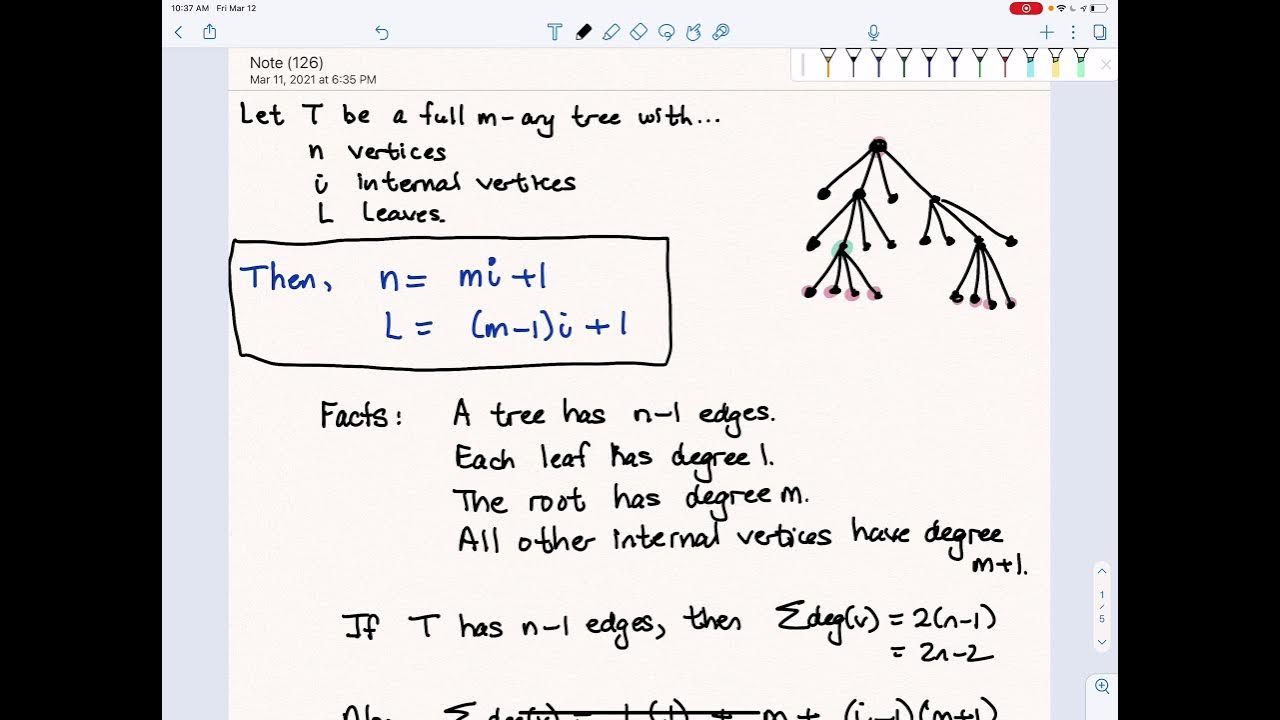 10:37 AM Fri Mar 12
Note (126)
Mar 11, 2021 at 6:35 PM
Let T be a full m-ary tree with...
n vertices
i internal vertices
L Leaves.
Then, n = mi + 1
L = (m-1)i + 1
Facts: A tree has n-1 edges.
Each leaf has degree 1.
The root has degree m.
All other internal vertices have degree
m+1.
If T has n-1 edges, then Σdeg(v) = 2(n-1)
= 2n-2
1
/
5
Σdeg(v) = L(1) + m + (i-1)(m+1)